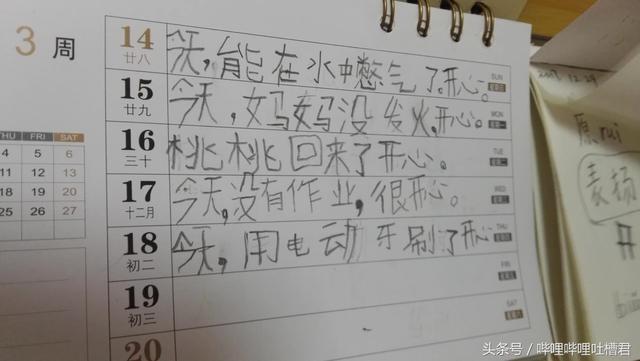 3 周
THU FRI SAT
4 5 6
11 12 13
18 19 20
25 26 27
14 廿八 今天,能在水中憋气了。开心。 SUN 星期日
15 廿九 今天,妈妈没发火,开心。 MON 星期一
16 三十 桃桃回来了开心。 TUE 星期二
17 十二月 今天,没有作业,很开心。 WED 星期三
18 初二 今天,用电动牙刷了开心 THU 星期四
19 初三 FRI 星期五
20 SAT 星期六
2017.12.29
原 rui
表扬
开
头条号 / 哔哩哔哩吐槽君